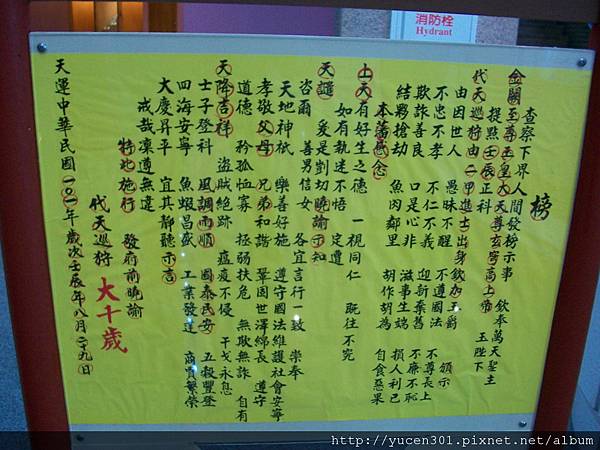 消防栓
Hydrant
榜
查察下界人間發榜示事 欽奉萬天聖主
金闕至尊玉皇大天尊玄穹高上帝 玉陛下
提點壬辰正科 頒示
代天巡狩由一甲進士出身欽加王爵
由因世人 愚昧不醒 不遵國法 不尊長上
不忠不孝 不仁不義 迎新棄舊 不廉不恥
欺詐善良 口是心非 滋事生端 損人利己
結夥搶劫 魚肉鄉里 胡作胡為 自食惡果
本藩感念
上天有好生之德 一視同仁 既往不究
如有執迷不悟 定遭
天譴 爰是剴切曉諭示知
咨爾 善男信女 各宜言行一致 崇奉
天地神祇 樂善好施 遵守國法維護社會安寧
孝敬父母 兄弟和諧 鞏固世澤綿長 遵守
道德 矜孤恤寡 拯弱扶危 無欺無詐 自有
天降吉祥 盜賊絕跡 瘟疫不侵 干戈永息
士子登科 風調雨順 國泰民安 五穀豐登
四海安寧 魚蝦昌盛 工業發達 商賈繁榮
大慶昇平 宜其靜聽示言
戒哉凜遵無違
特此施行 發府前曉諭
代天巡狩 大千歲
天運中華民國一0一年歲次壬辰年八月二十九日
http://yucen301.pixnet.net/album